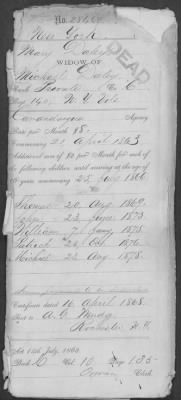 No. 28.
New York
Mary Daley
WIDOW OF
Michael Daley
DEAD
Rank Private Co. C
Reg 140, N.Y. Vols
Canandaigua Agency
Rate per Month $8.
Commencing 21 April 1863
Additional sum of $2 per month for each of
the following children until arriving at the age of
16 years commencing 25 July 1866
Thomas 20 Aug. 1869.
John 23 June 1873.
William 7 Jany 1875.
Patrick 26 Oct. 1876
Michael 22 Aug. 1878.
Certificate dated 16 April 1868.
Sent to A. G. Mudge
Rochester N.Y.
Act 14th July, 1862.
Book Vol. Page 135
Clerk.